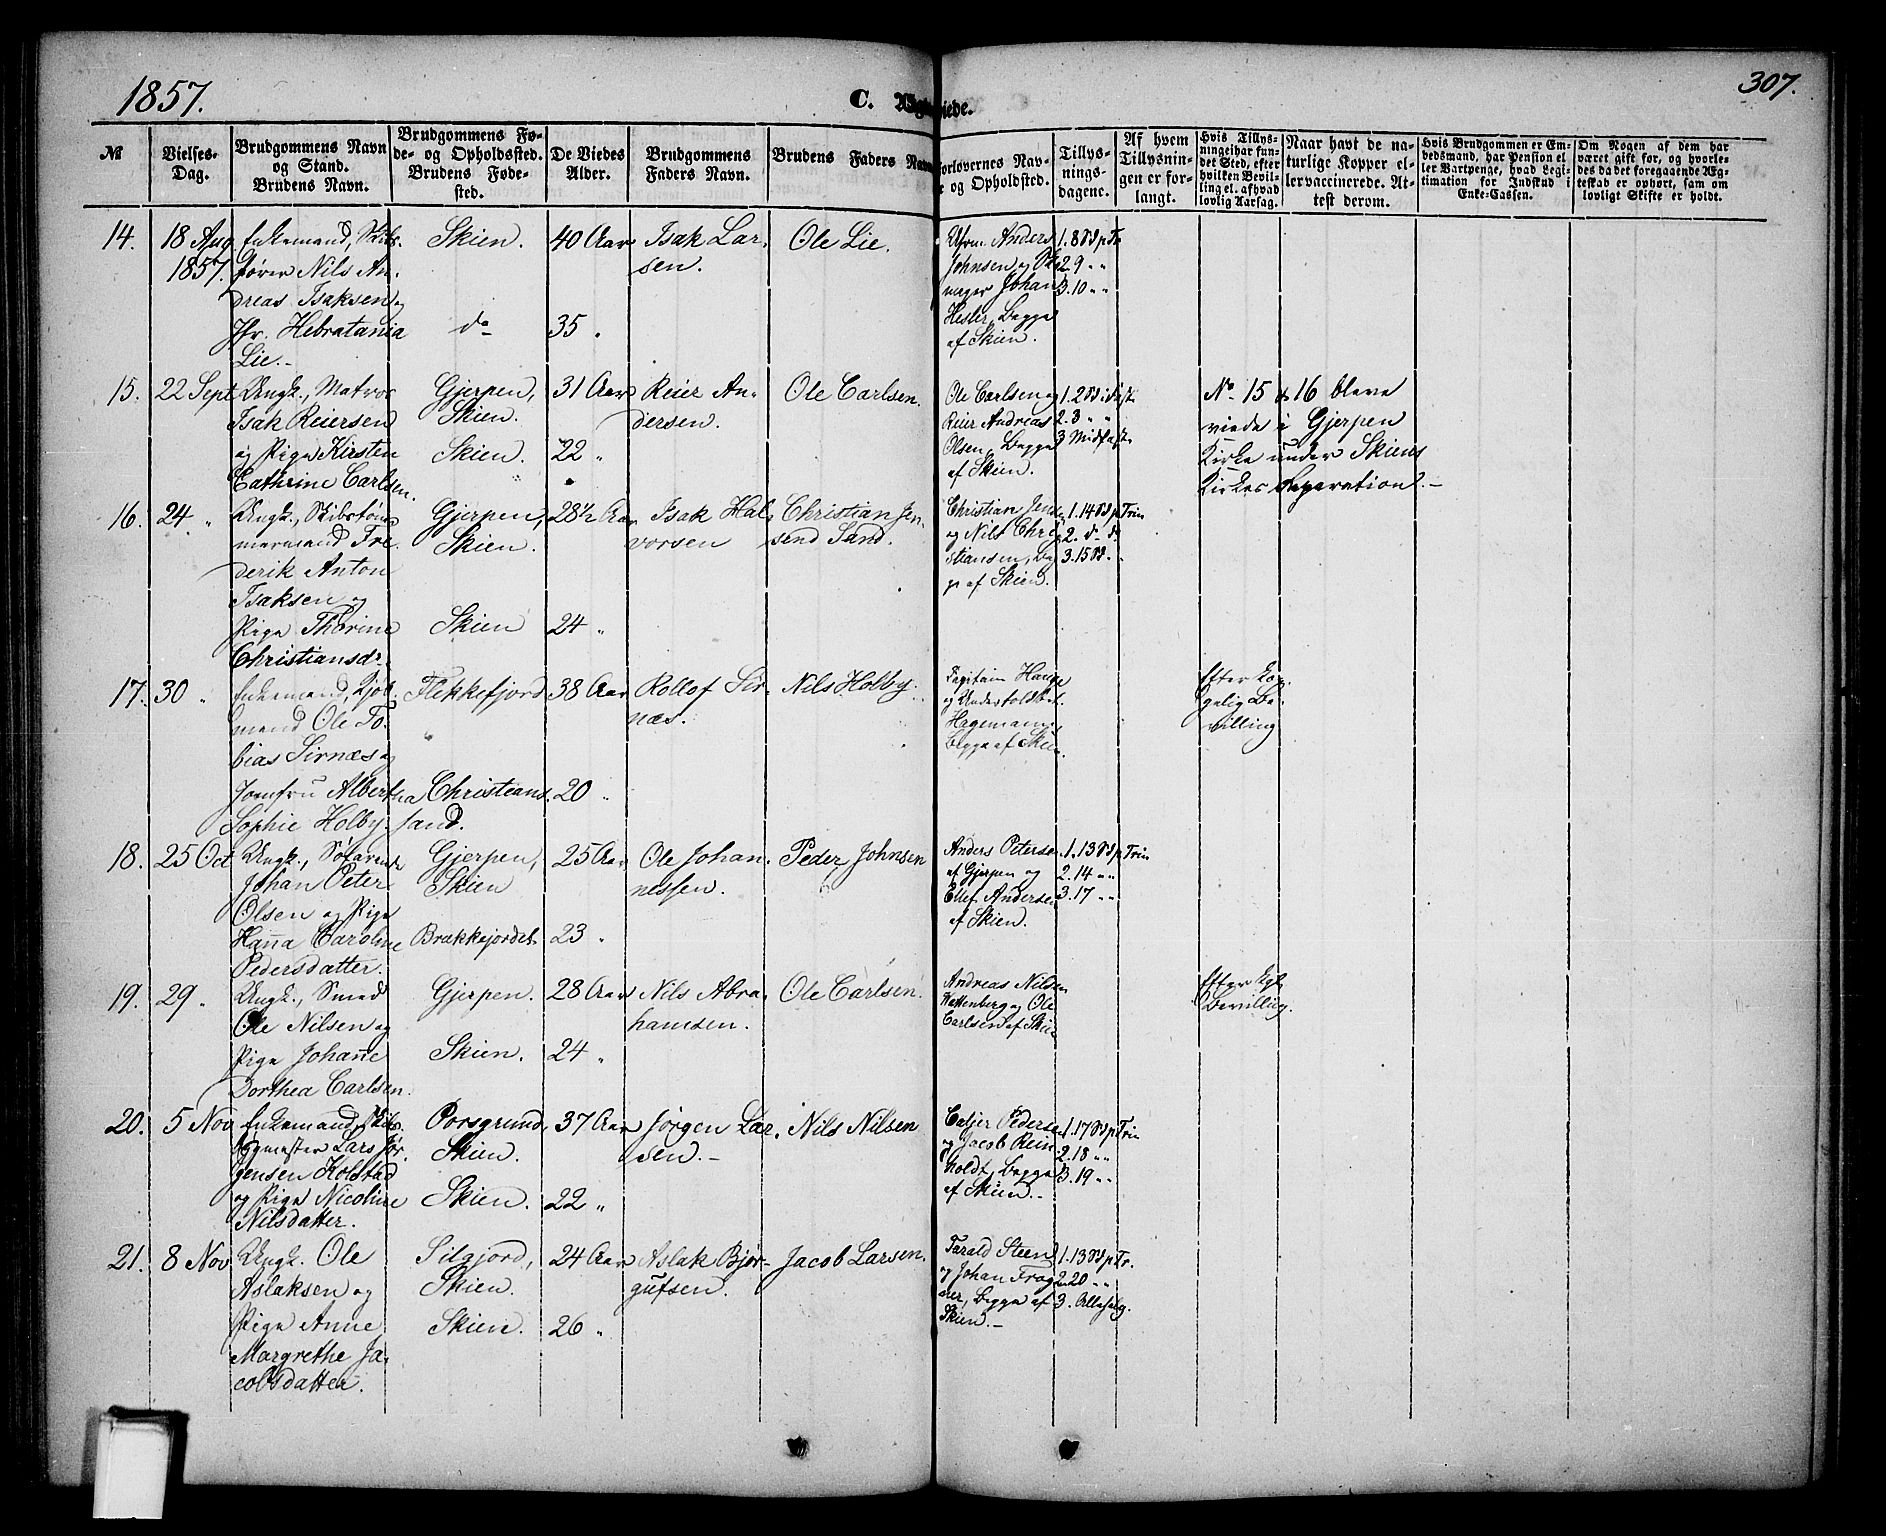 1857.
C. Ægteviede.
307.
No
Vielses-
Dag.
Brudgommens Navn
og Stand.
Brudens Navn.
Brudgommens Fø-
de- og Opholdsted.
Brudens Føde-
sted.
De Viedes
Alder.
Brudgommens
Faders Navn.
Brudens Faders Navn
Forlovernes Nav-
ne og Opholdsted.
Tillys-
nings-
dagene.
Af hvem
Tillysnin-
gen er for-
langt.
Hvis Tillys-
ning ei har fun-
det Sted, efter
hvilken Bevil-
ling el. afhvad
lovlig Aarsag.
Naar havt de na-
turlige Kopper el-
ler vaccinerede. At-
test derom.
Hvis Brudgommen er Em-
bedsmand, har Pension el
ler Vartpenge, hvad Legi-
timation for Indskud i
Enke-Cassen.
Om Nogen af dem har
været gift før, og hvorle-
des da det foregaaende Æg-
teskab er ophørt, sam om
lovligt Skifte er holdt.
14.
18 Aug
1857.
Enkemand, Skibs-
fører Nils An-
dreas Isaksen og
Jfr. Hebratania
Lie.-
Skien.
do
40 Aar
35 "
Isak Lar-
sen.
Ole Lie.
Anders
Johnsen og
Johan
Hesler, Begge
af Skien.
1. 8 S p Tr
2. 9 " "
3. 10 " "
15.
22 Sept
Ungk., Matros
Isak Reiersen
og Pige Kirsten
Cathrine Carlsen.
Gjerpen,
Skien.
Skien.
31 Aar
22 "
Reier An-
dersen.
Ole Carlsen.
Ole Carlsen og
Reier Andreas
Olsen, Begge
af Skien.
1. 2 S i Fast.
2. 3 " "
3 Midfast.
No 15 & 16 bleve
viede i Gjerpen
Kirke under Skiens
Kirkes Reparation.-
16.
24 "
Ungk., Skibstøm-
mermand Fre-
derik Anton
Isaksen og
Pige Thorine
Christiansdr.
Gjerpen,
Skien.
Skien
28½ Aar
24 "
Isak Hal-
vorsen
Christian Jen-
send Sand.
Christian Jensen
og Nils Chri-
stiansen, Beg-
ge af Skien.
1. 14 S p Trin
2. do do
3. 15 S. "
17.
30 "
Enkemand, Kjøb-
mand Ole To-
bias Sirnæs og
Jomfru Albertha
Sophie Holby.
Flekkefjord
Christians-
sand.
38 Aar
20 "
Rollof Sir-
næs.
Nils Holby.
Capitain Hauge
og Underfoldbet.
Hagemann,
Begge af Skien.
Efter Kon-
gelig Be-
villing
18.
25 Oct
Ungk., Søfarende
Johan Peter
Olsen og Pige
Hanna Caroline
Pedersdatter.
Gjerpen,
Skien
Brækkejordet
25 Aar
23 "
Ole Johan-
nessen.
Peder Johnsen
Anders Petersen
af Gjerpen og
Ellef Andersen
af Skien.
1. 13 S p Trin
2. 14 " "
3. 17 " "
19.
29. "
Ungk., Smed
Ole Nilsen og
Pige Johanne
Dorthea Carlsen.
Gjerpen.
Skien.
28 Aar
24 "
Nils Abra-
hamsen.
Ole Carlsen.
Andreas Nilsen
Wattenberg og Ole
Carlsen af Skien
Efter Kgl.
Bevilling.
20.
5 Nov
Enkemand, Skibs-
bygmester Lars Jør-
gensen Kolstad
og Pige Nicoline
Nilsdatter.
Porsgrund,
Skien.
Skien.
37 Aar
22 "
Jørgen Lar-
sen.-
Nils Nilsen
Pedersen
og Jacob Rein-
holdt, Begge
af Skien.-
1. 17 S p Trin
2. 18 " "
3. 19 " "
21.
8 Nov
Ungk. Ole
Aslaksen og
Pige Anne
Margrethe Ja-
cobsdatter.
Silgjord,
Skien.
Skien.
24 Aar
26 "
Aslak Bjør-
gufsen.
Jacob Larsen.
Tarald Steen
og Johan Frog-
ner, Begge af
Skien.-
1. 13 S p Tr.
2. 20 " "
3. Allehelg.